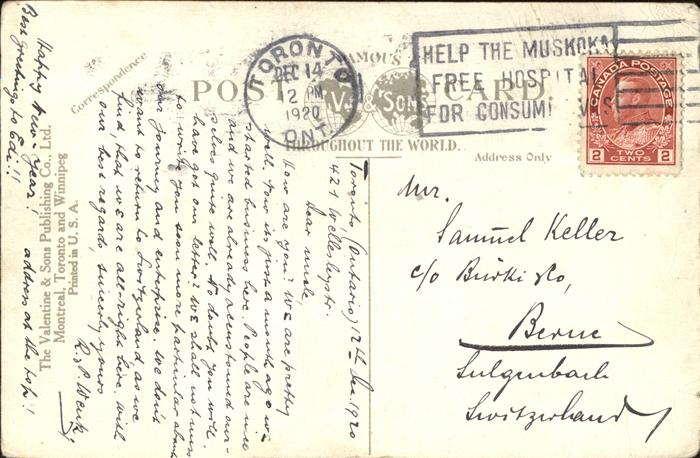 Correspondence
POST CARD
FAMOUS
VALENTINE & SONS
THROUGHOUT THE WORLD.
Address Only
TORONTO
DEC 14
2 PM
1920
ONT.
HELP THE MUSKOKA
FREE HOSPITAL
FOR CONSUMPTIVES
CANADA POSTAGE
2 TWO CENTS 2
Mr.
Samuel Keller
c/o Bürki & Co,
Berne
Sulgenbach
Switzerland
Toronto (Ontario) 12th Dec. 1920
421 Wellesleystr.
Dear uncle,
How are you? We are pretty
well. Now is just a month ago we
started business here. People are nice
and we are already accustomed our-
selves quite well. No doubt you will
have got our letter? We shall not miss
to write you soon more particular about
our journey and enterprise. We don't
want to return to Switzerland as we
find that we are all-right here. With
our best regards, sincerely yours
R. P. Wenk
Happy New-Year! address at the top!
Best greetings to Edi!!
The Valentine & Sons Publishing Co., Ltd.
Montreal, Toronto and Winnipeg
Printed in U. S. A.